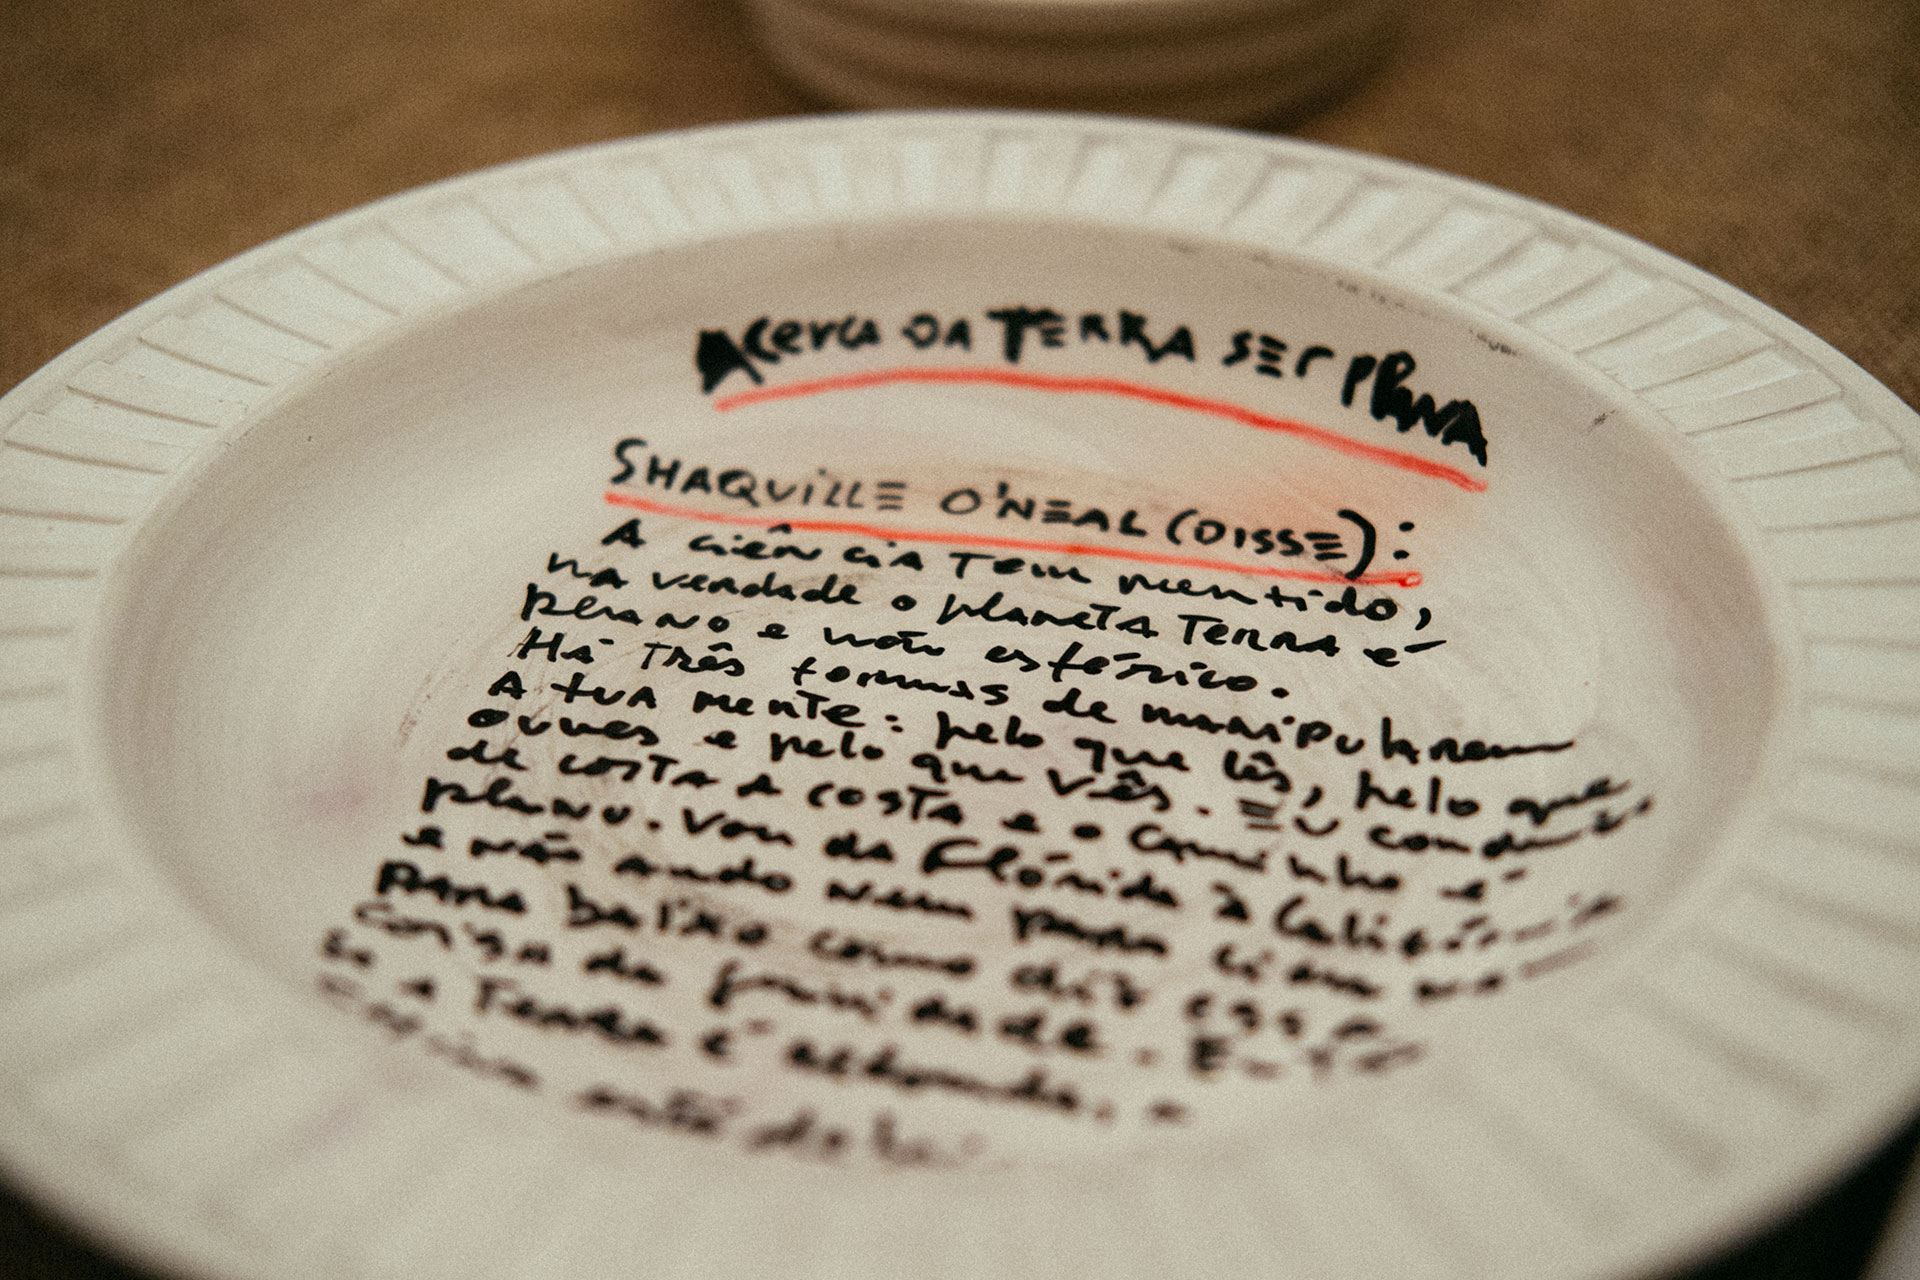 Acerca da TERRA SER PLANA
SHAQUILLE O'NEAL (DISSE):
A ciência tem mentido,
na verdade o planeta Terra é
plano e não esférico.
Há três formas de manipularem
a tua mente: pelo que lês, pelo que
ouves e pelo que vês. Eu conduzi
de costa a costa e o caminho é
plano. Vou da Flórida à Califórnia
e não ando nem para cima nem
para baixo como diz essa
coisa da gravidade. E
se a Terra é redonda,
está do